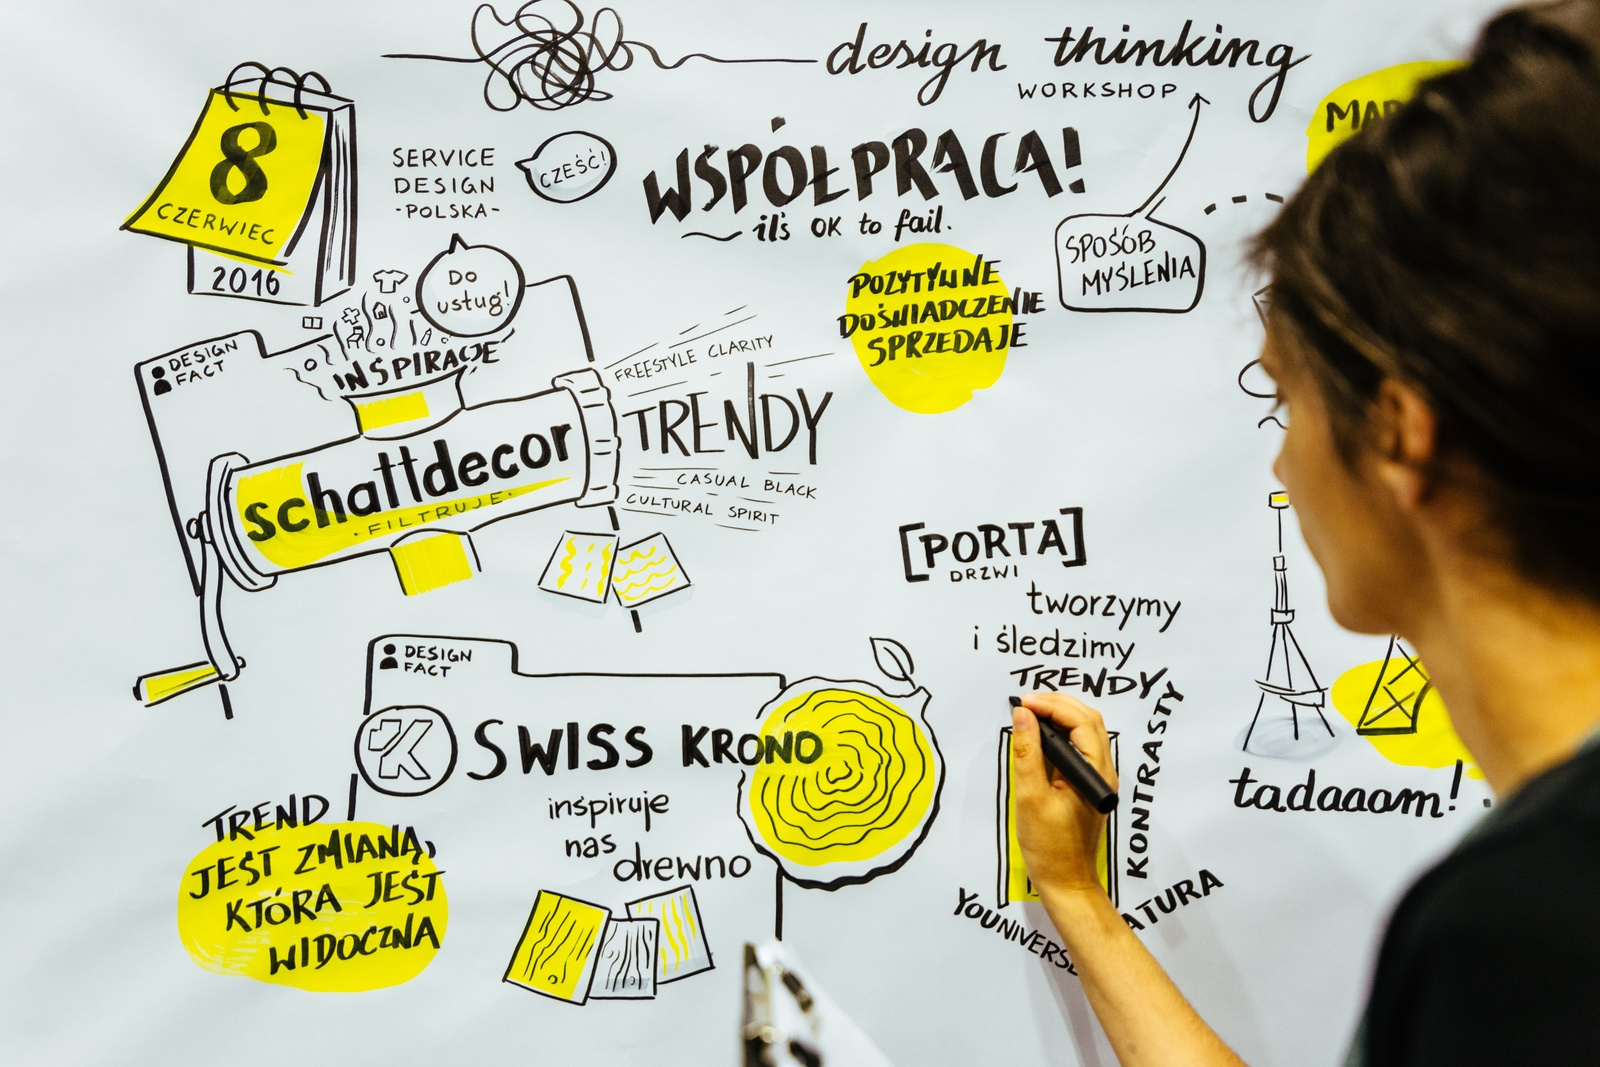 design thinking
WORKSHOP
8
CZERWIEC
2016
SERVICE
DESIGN
-POLSKA-
CZEŚĆ!
WSPÓŁPRACA!
it's OK to fail.
SPOSÓB
MYŚLENIA
POZYTYWNE
DOŚWIADCZENIE
SPRZEDAJE
DO
usług!
DESIGN
FACT
INSPIRACJE
schattdecor
·FILTRUJE·
FREESTYLE CLARITY
TRENDY
CASUAL BLACK
CULTURAL SPIRIT
[PORTA]
DRZWI
tworzymy
i śledzimy
TRENDY
KONTRASTY
YOUNIVERSE
tadaaam!
DESIGN
FACT
K SWISS KRONO
inspiruje
nas
drewno
TREND
JEST ZMIANĄ,
KTÓRA JEST
WIDOCZNA